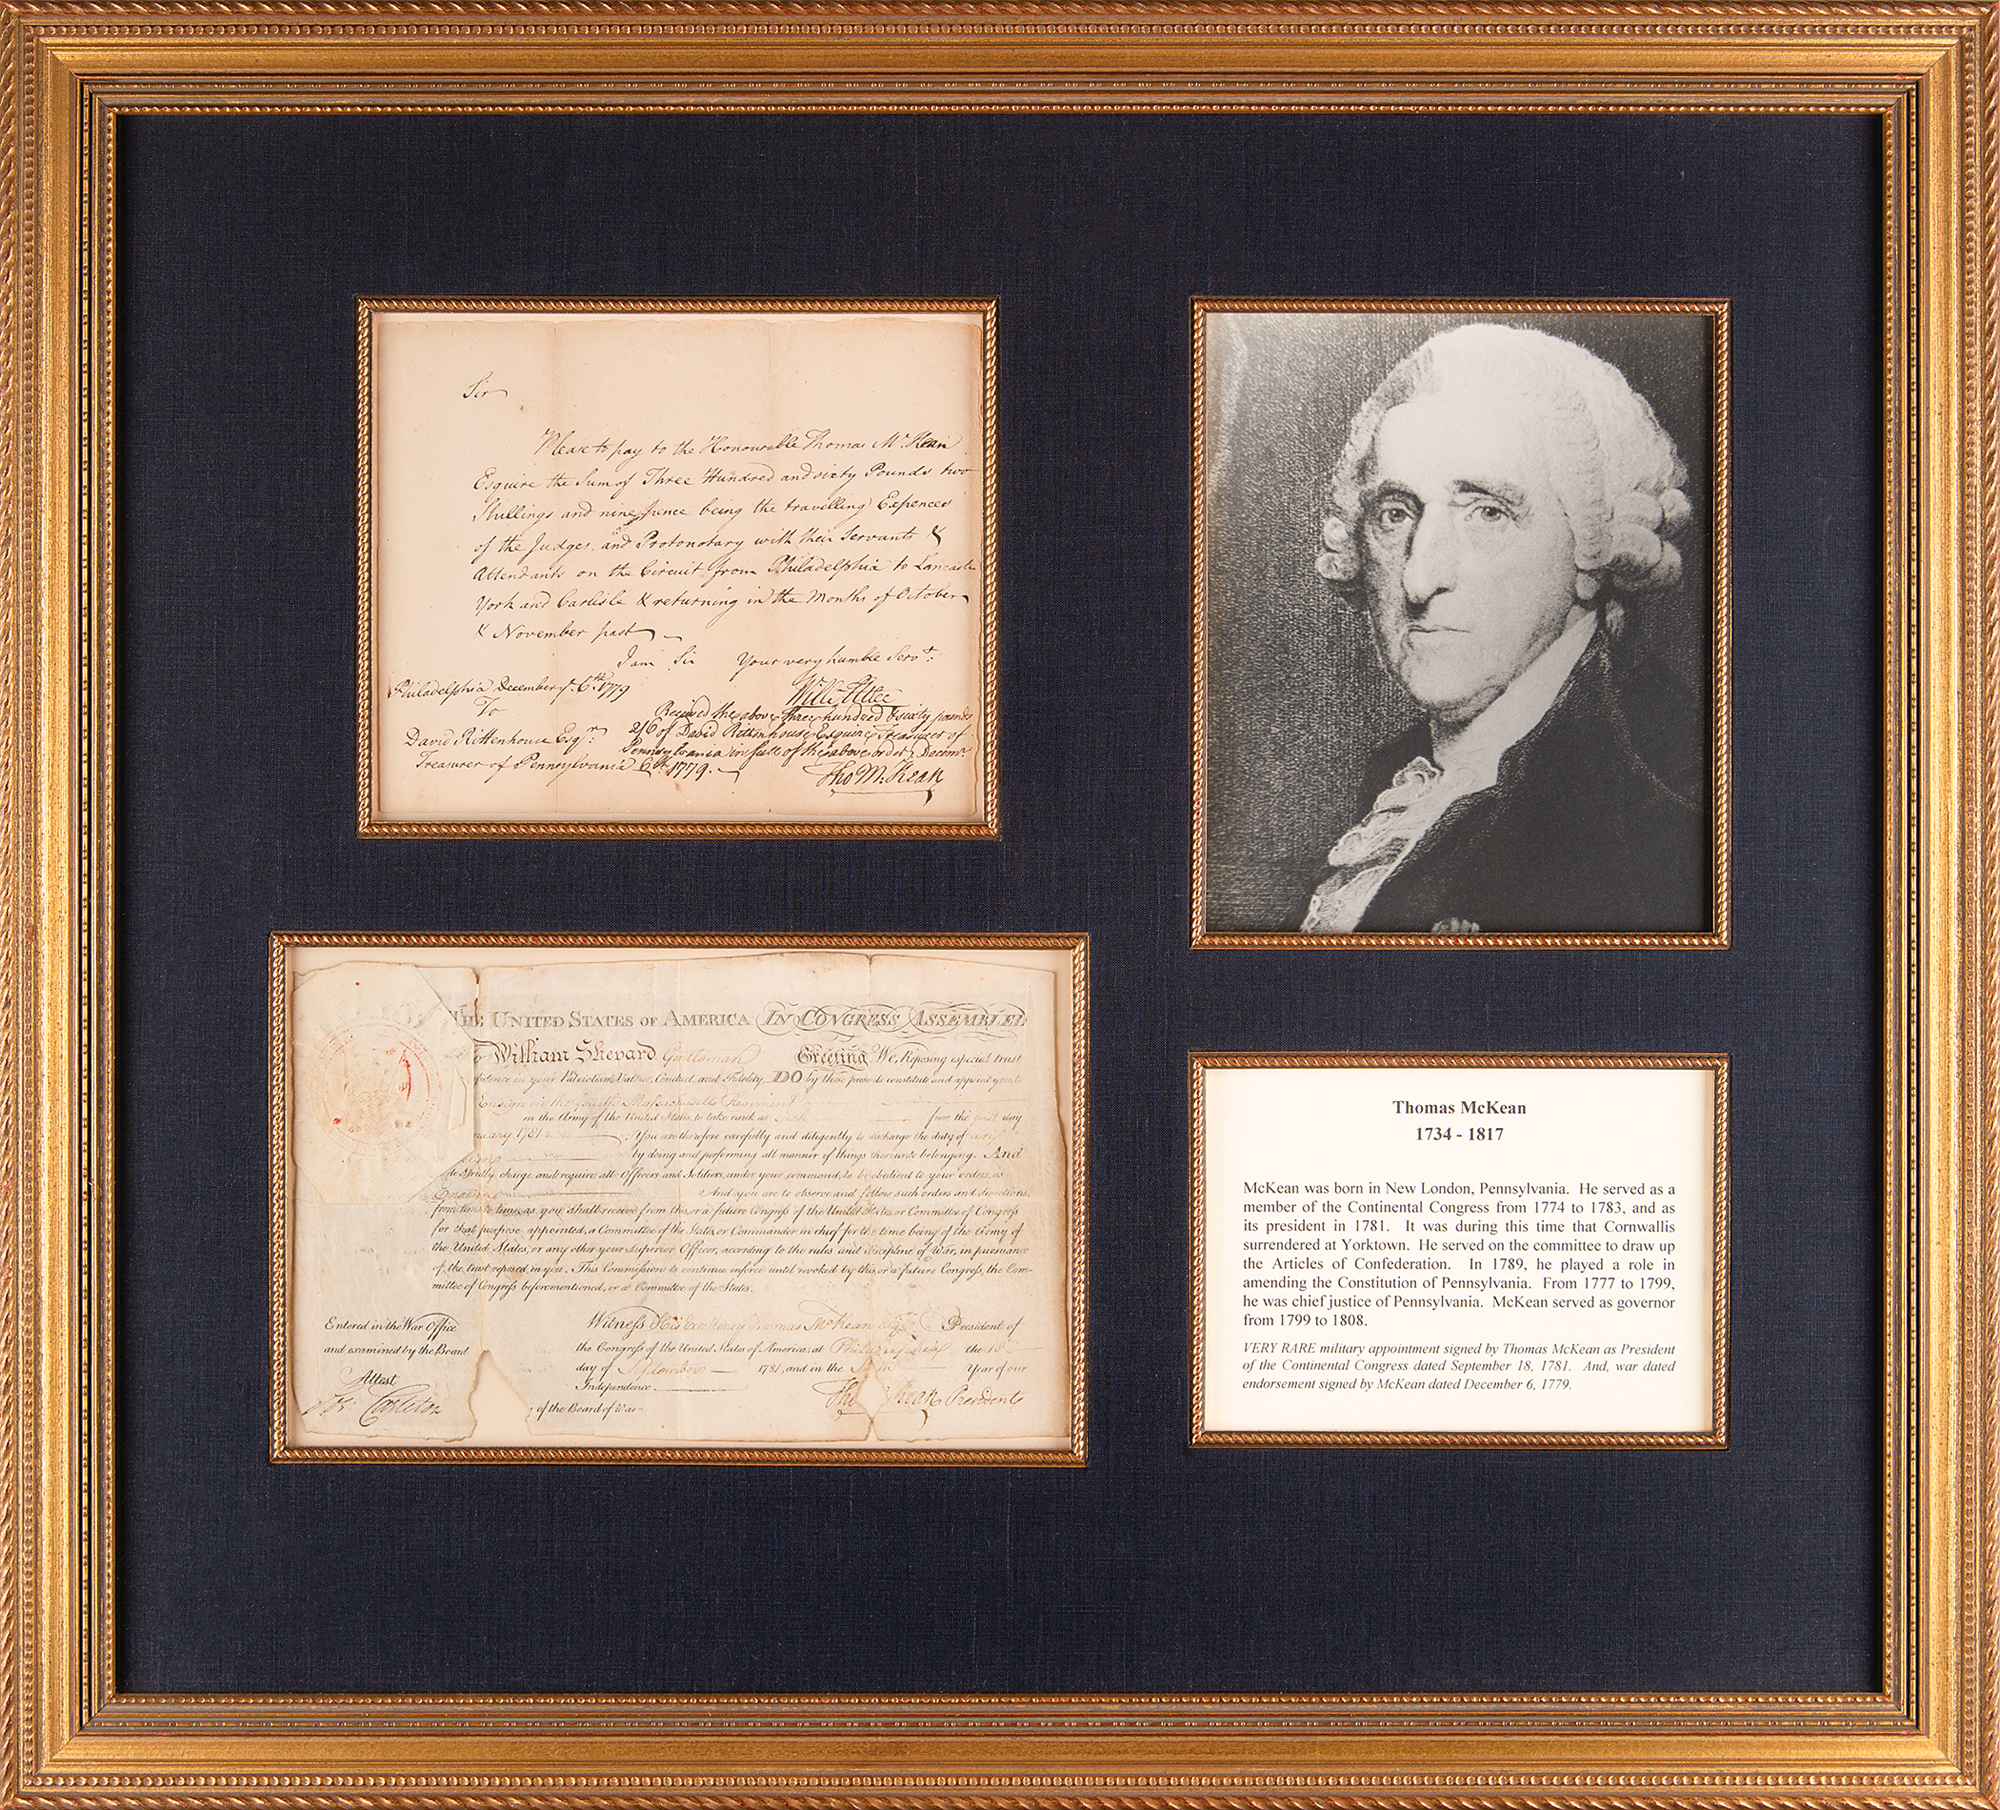 Sir
Please to pay to the Honourable Thomas McKean
Esquire the Sum of Three Hundred and sixty Pounds two
Shillings and nine pence being the travelling Expences
of the Judges, and Protonotary with their Servants &
Attendants on the Circuit from Philadelphia to Lancaster
York and Carlisle & returning in the Months of October
& November past
I am Sir Your very humble Servt.
Philadelphia December ye. 6th 1779
To
David Rittenhouse Esqr.
Treasurer of Pennsylvania
Received the above three hundred & sixty pounds
2/6 of David Rittenhouse Esquire Treasurer of
Pennsylvania in full of the above order, Decemr.
6th. 1779.
Tho M:Kean
THE UNITED STATES OF AMERICA IN CONGRESS ASSEMBLED
To William Shepard Gentleman Greeting We, Reposing especial trust
in your Patriotism, Valour, Conduct, and Fidelity, DO by these presents constitute and appoint you to
Ensign in the fourth Massachusetts Regiment
in the Army of the United States, to take rank as such from the first day
1781 You are therefore carefully and diligently to discharge the duty of
by doing and performing all manner of things thereunto belonging. And
do strictly charge and require all Officers and Soldiers under your command, to be obedient to your orders, as
And you are to observe and follow such orders and directions
from time to time, as you shall receive from this, or a future Congress of the United States, or Committee of Congress
for that purpose appointed, a Committee of the States, or Commander in chief for the time being of the Army of
the United States, or any other your superior Officer, according to the rules and discipline of War, in pursuance
of the trust reposed in you. This Commission to continue in force until revoked by this, or a future Congress, the Com-
mittee of Congress beforementioned, or a Committee of the States.
Entered in the War Office
and examined by the Board
Attest
Carleton
Witness His Excellency Thomas McKean Esqr. President of
the Congress of the United States of America, at Philadelphia the 18
day of September 1781, and in the Year of our
Independence
of the Board of War
Tho Kean President
Thomas McKean
1734 - 1817
McKean was born in New London, Pennsylvania. He served as a
member of the Continental Congress from 1774 to 1783, and as
its president in 1781. It was during this time that Cornwallis
surrendered at Yorktown. He served on the committee to draw up
the Articles of Confederation. In 1789, he played a role in
amending the Constitution of Pennsylvania. From 1777 to 1799,
he was chief justice of Pennsylvania. McKean served as governor
from 1799 to 1808.
VERY RARE military appointment signed by Thomas McKean as President
of the Continental Congress dated September 18, 1781. And, war dated
endorsement signed by McKean dated December 6, 1779.